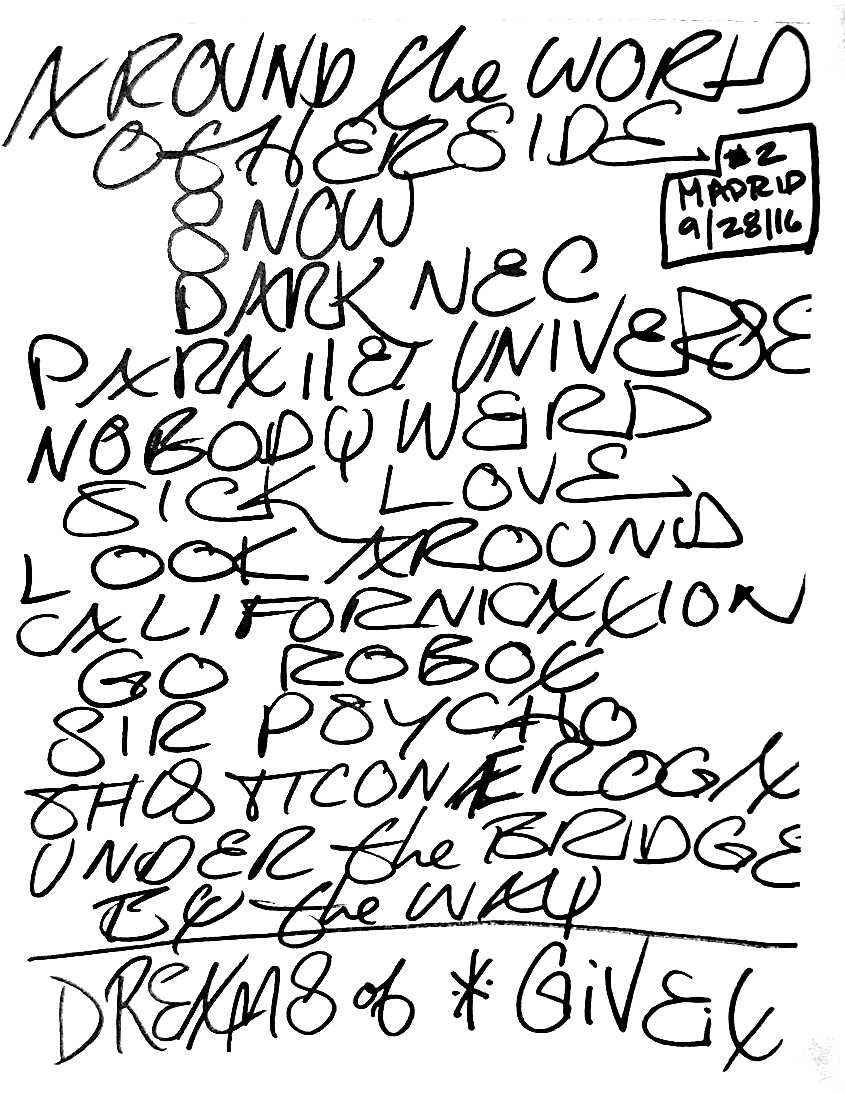 AROUND the WORLD
OTHERSIDE
#2
MADRID
9/28/16
SNOW
DARK NEC
PARAllEl UNIVERSE
NOBODY WERD
SICK LOVE
LOOK AROUND
CALIFORNICATION
GO ROBOT
SIR PSYCHO
THIS TICONDEROGA
UNDER the BRIDGE
BY the WAY
DREAMS of * GiVE it